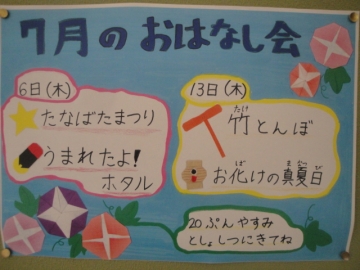 7月のおはなし会
6日(木)
たなばたまつり
うまれたよ!
ホタル
13日(木)
竹とんぼ
たけ
お化けの真夏日
ば まなつび
20ぷんやすみ
としょしつにきてね